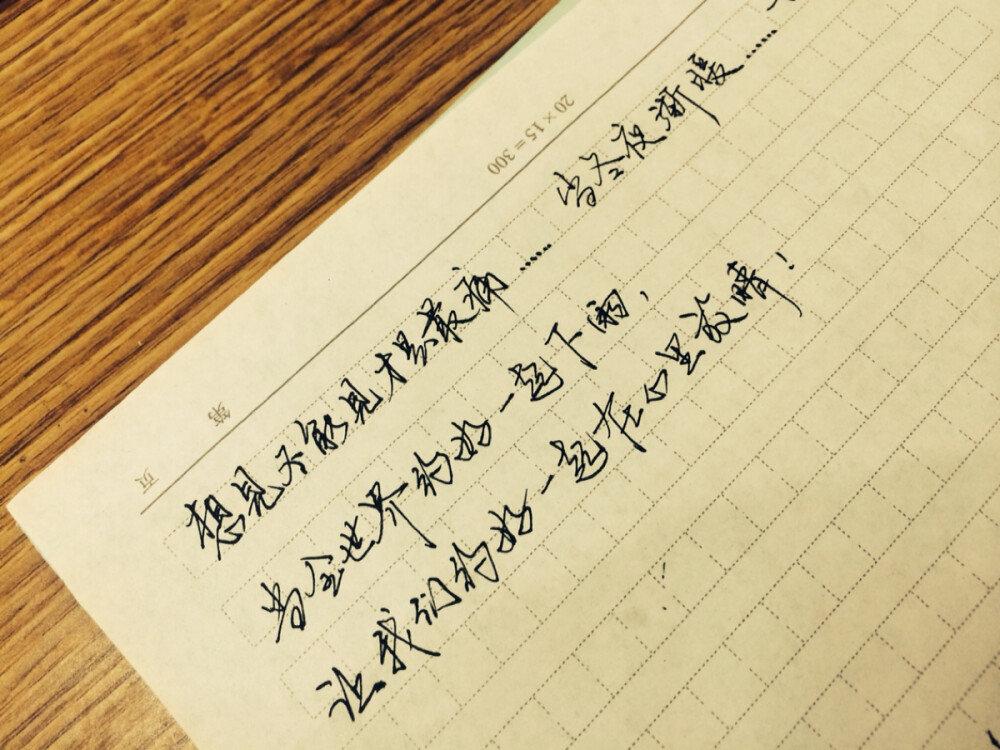 20×15=300
第 页
想见不能见才是最痛…… 当冬夜渐暖……
当全世界约好一起下雨，
让我们约好一起在心里放晴！